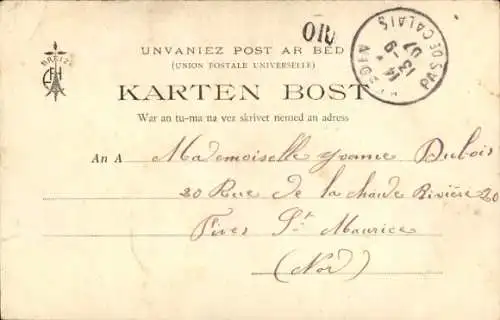 BREIZ
OIO
UNVANIEZ POST AR BED
(UNION POSTALE UNIVERSELLE)
KARTEN BOST
War an tu-ma na vez skrivet nemed an adress
PAS DE CALAIS
13-9
07
An A Mademoiselle Yvonne Dubois
20 Rue de la chaude Rivière 20
Fives St Maurice
(Nord)